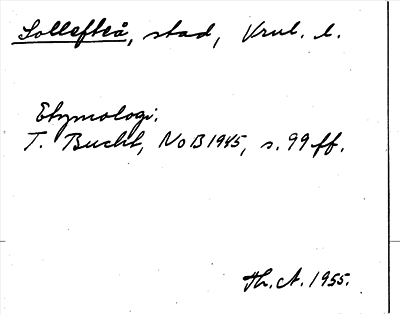 Sollefteå, stad, Vrnl. l.
Etymologi.
T. Bucht, NoB 1945, s. 99 ff.
Th. A. 1955.